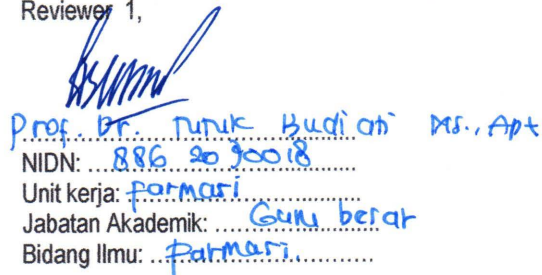 Reviewer 1,
Prof. Dr. Tutuk Budiati MS., Apt
NIDN: 886 20 30018
Unit kerja: Farmasi
Jabatan Akademik: Guru besar
Bidang Ilmu: Farmasi.